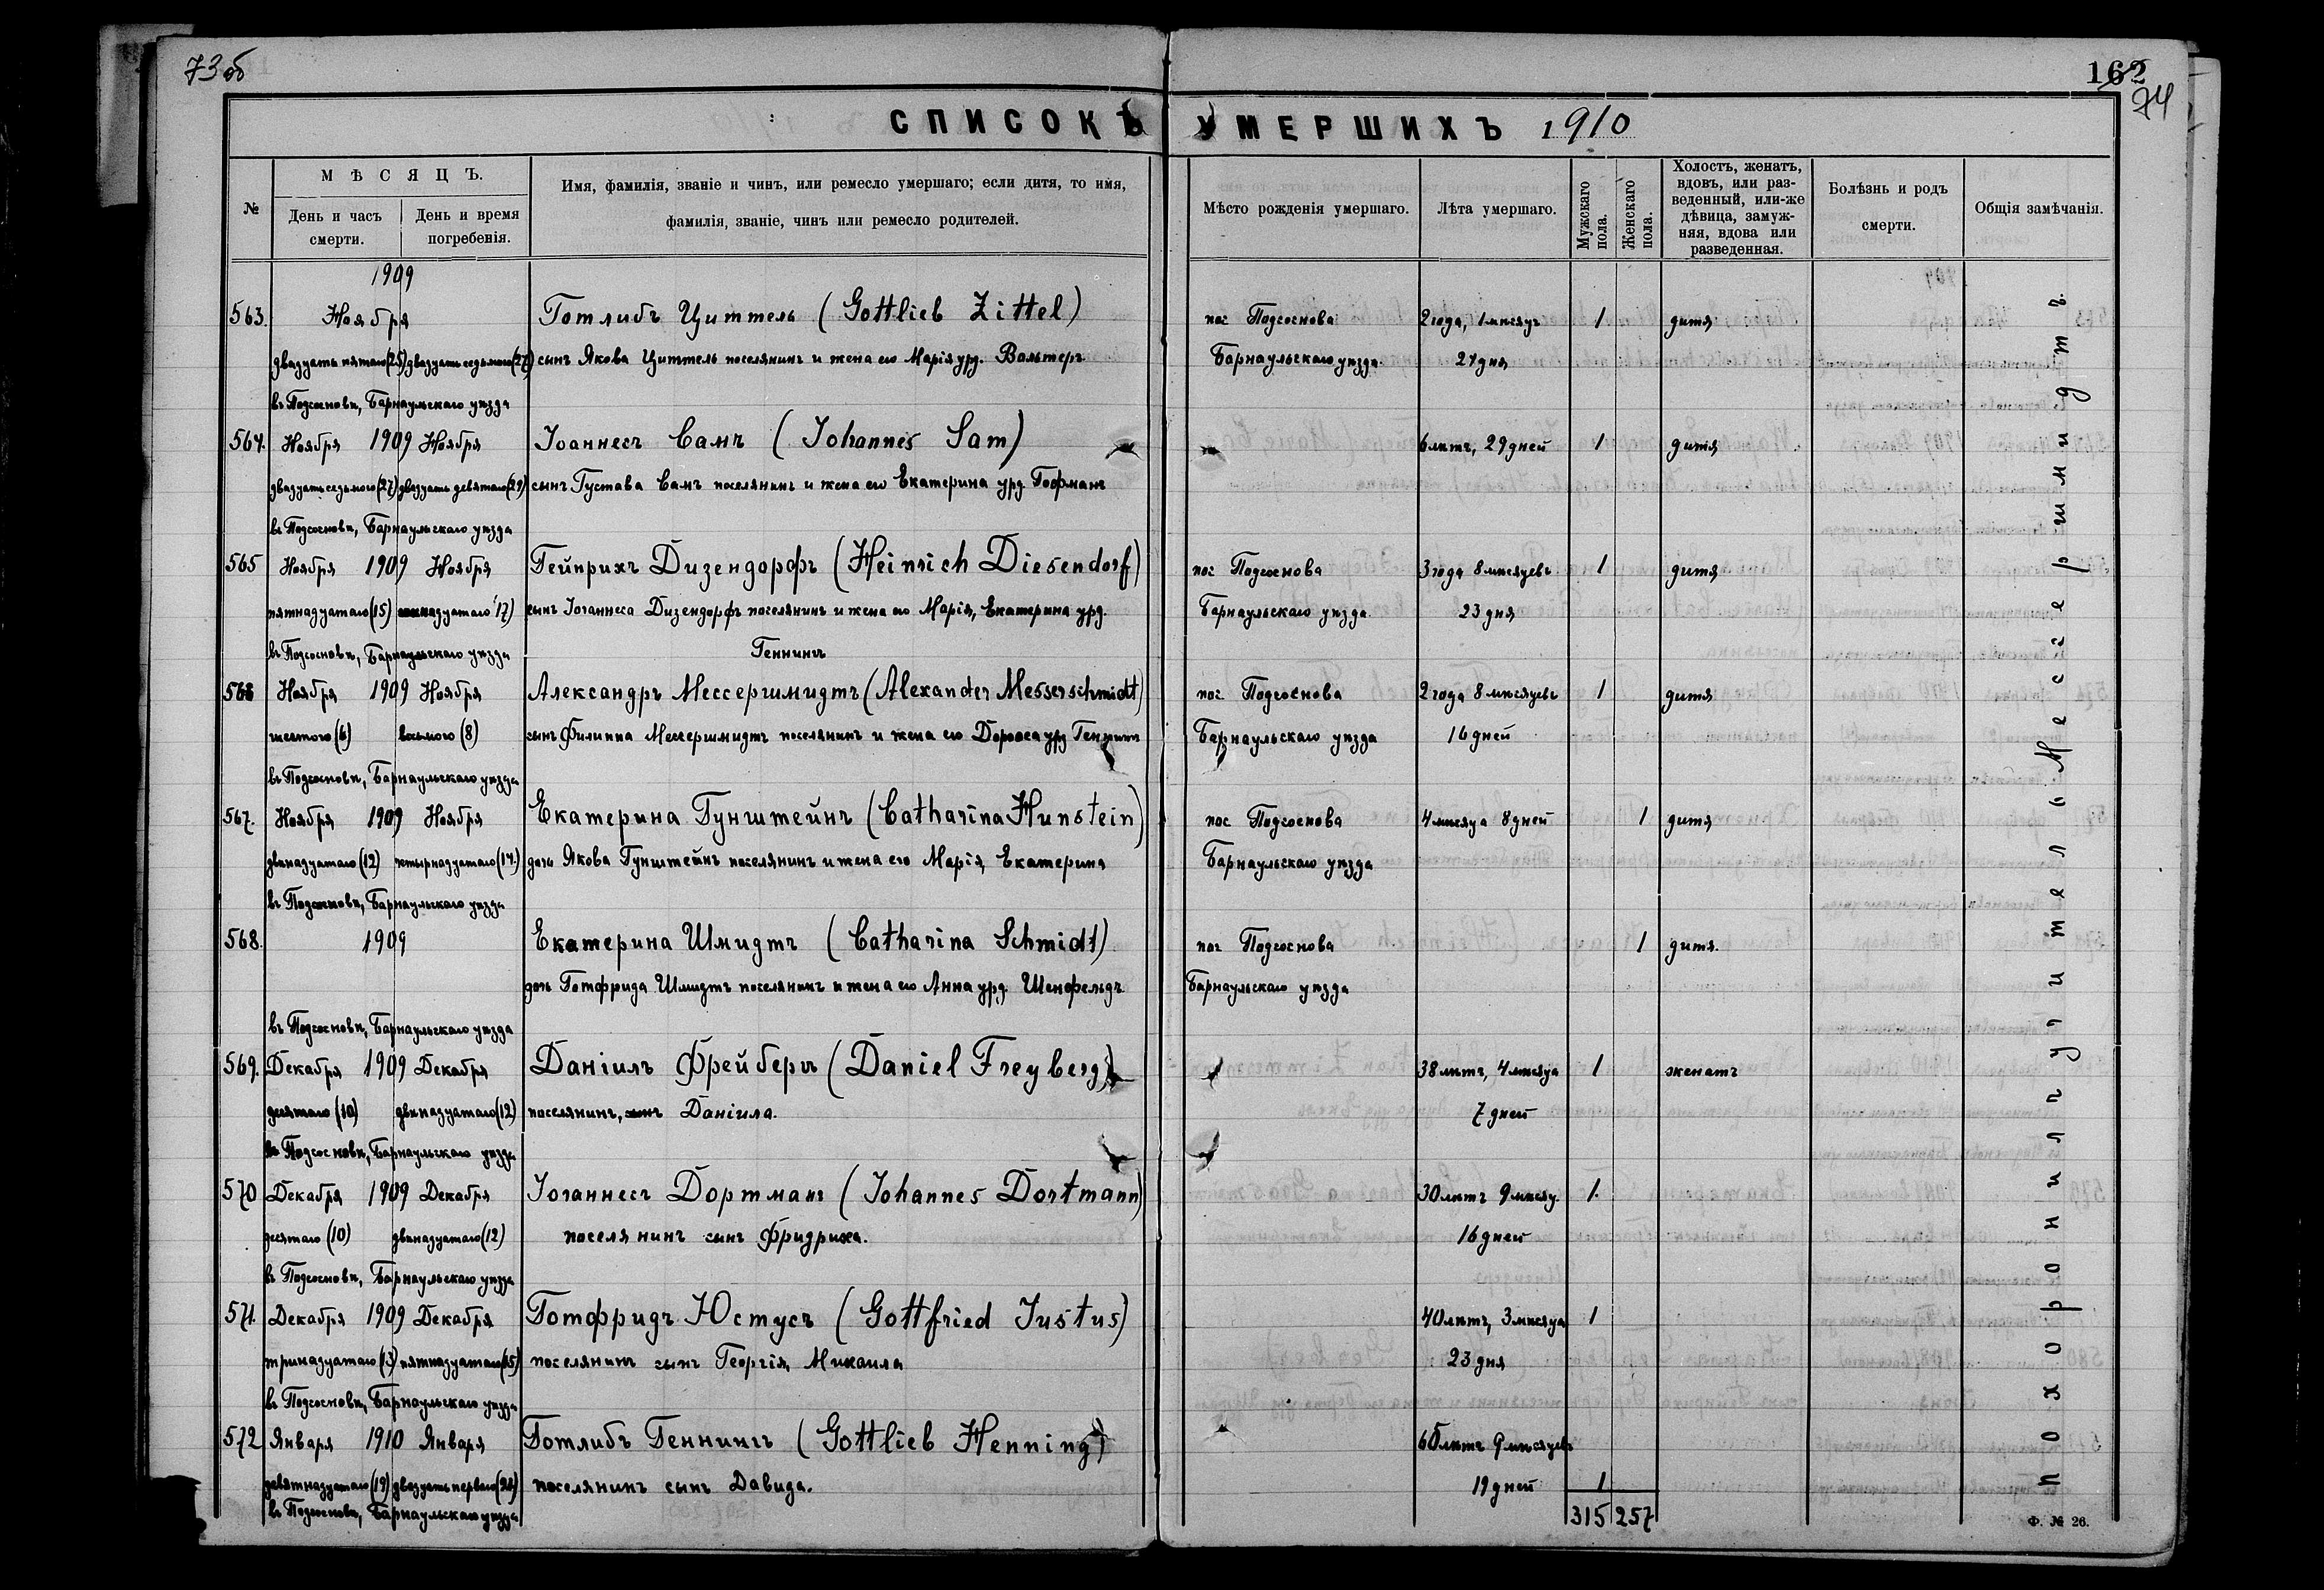 73 об
162
74
СПИСОКЪ УМЕРШИХЪ 1910
№
МѢСЯЦЪ.
День и часъ смерти.
День и время погребенія.
Имя, фамилія, званіе и чинъ, или ремесло умершаго; если дитя, то имя,
фамилія, званіе, чинъ или ремесло родителей.
Мѣсто рожденія умершаго.
Лѣта умершаго.
Мужскаго пола.
Женскаго пола.
Холостъ, женатъ,
вдовъ, или раз-
веденный, или-же
дѣвица, замуж-
няя, вдова или
разведенная.
Болѣзнь и родъ
смерти.
Общія замѣчанія.
1909
563. Ноября Готлибъ Циттель (Gottlieb Zittel) пос Подсоснова 2 года, 1 мѣсяцъ 1 дитя
двадцать пятаго (25) двадцать седьмого (27) сынъ Якова Циттель поселянинъ и жена его Марія урд. Вальтеръ Барнаульскаго уѣзда. 27 дня
въ Подсосновѣ, Барнаульскаго уѣзда
564. Ноября 1909 Ноября Іоаннесъ Самъ (Johannes Sam) 6 лѣтъ, 29 дней 1 дитя
двадцать седьмого (27) двадцать девятаго (29) сынъ Густава Самъ поселянинъ и жена его Екатерина урд. Гофманъ
въ Подсосновѣ, Барнаульскаго уѣзда
565 Ноября 1909 Ноября Гейнрихъ Дизендорфъ (Heinrich Diesendorf) пос Подсоснова 3 года 8 мѣсяцевъ 1 дитя
пятнадцатаго (15) (17) сынъ Іоганнеса Дизендорфъ поселянинъ и жена его Марія, Екатерина урд. Барнаульскаго уѣзда 23 дня
въ Подсосновѣ, Барнаульскаго уѣзда Геннингъ
566 Ноября 1909 Ноября Александръ Мессершмидтъ (Alexander Messerschmidt) пос. Подсоснова 2 года 8 мѣсяцевъ 1 дитя
шестого (6) восьмого (8) сынъ Филиппа Мессершмидтъ поселянинъ и жена его Доротеа урд Геннингъ Барнаульскаго уѣзда 16 дней
въ Подсосновѣ, Барнаульскаго уѣзда
567. Ноября 1909 Ноября Екатерина Гунштейнъ (Catharina Hunstein) пос Подсоснова 4 мѣсяца 8 дней 1 дитя
двѣнадцатаго (12) четырнадцатаго (14.) дочь Якова Гунштейнъ поселянинъ и жена его Марія, Екатерина Барнаульскаго уѣзда
въ Подсосновѣ, Барнаульскаго уѣзда
568. 1909 Екатерина Шмидтъ (Catharina Schmidt) пос Подсоснова 1 дитя.
дочь Готфрида Шмидтъ поселянинъ и жена его Анна урд. Шенфельдъ Барнаульскаго уѣзда
въ Подсосновѣ, Барнаульскаго уѣзда
569. Декабря 1909 Декабря Даніилъ Фрейбергъ (Daniel Freyberg) 38 лѣтъ, 4 мѣсяца 1 женатъ
десятаго (10) двѣнадцатаго (12) поселянинъ, сынъ Даніила. 7 дней
въ Подсосновѣ, Барнаульскаго уѣзда
570 Декабря 1909 Декабря Іоганнесъ Дортманъ (Johannes Dortmann) 30 лѣтъ 9 мѣсяц. 1.
десятаго (10) двѣнадцатаго (12) поселянинъ сынъ Фридриха. 16 дней
въ Подсосновѣ, Барнаульскаго уѣзда
571. Декабря 1909 Декабря Готфридъ Юстусъ (Gottfried Justus) 40 лѣтъ, 3 мѣсяца 1
тринадцатаго (13) пятнадцатаго (15) поселянинъ сынъ Георгія, Михаила 23 дня
въ Подсосновѣ, Барнаульскаго уѣзда
572 Января 1910 Января Готлибъ Геннингъ (Gottlieb Henning) лѣтъ 9 мѣсяцевъ
девятнадцатаго (19) двадцать перваго (21) поселянинъ сынъ Давида. 19 дней 1
въ Подсосновѣ, Барнаульскаго уѣзда
315 257
Похоронилъ учитель О. Мессершмидтъ.
Ф. № 26.